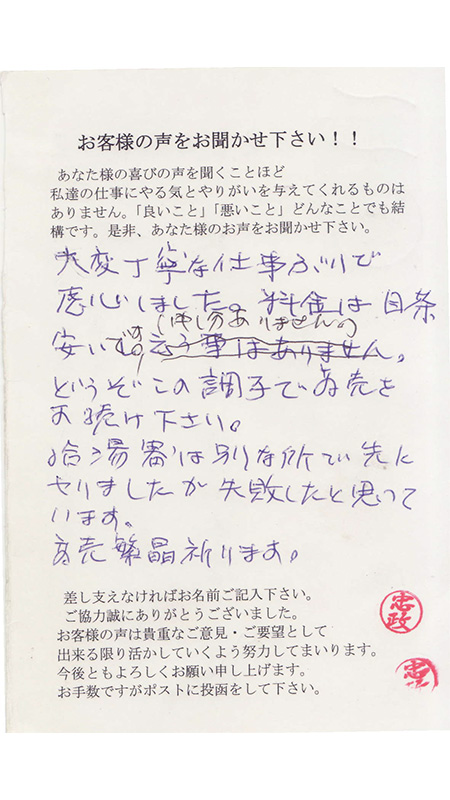 お客様の声をお聞かせ下さい！！
あなた様の喜びの声を聞くことほど
私達の仕事にやる気とやりがいを与えてくれるものは
ありません。「良いこと」「悪いこと」どんなことでも結
構です。是非、あなた様のお声をお聞かせ下さい。
大変丁寧な仕事ぶりで
感心しました。料金は目茶
安いです。
云う事はありません。
どうぞこの調子で商売を
お続け下さい。
給湯器は別な所で先に
やりましたが失敗したと思って
います。
商売繁晶祈ります。
差し支えなければお名前ご記入下さい。
ご協力誠にありがとうございました。
お客様の声は貴重なご意見・ご要望として
出来る限り活かしていくよう努力してまいります。
今後ともよろしくお願い申し上げます。
お手数ですがポストに投函をして下さい。
忠政